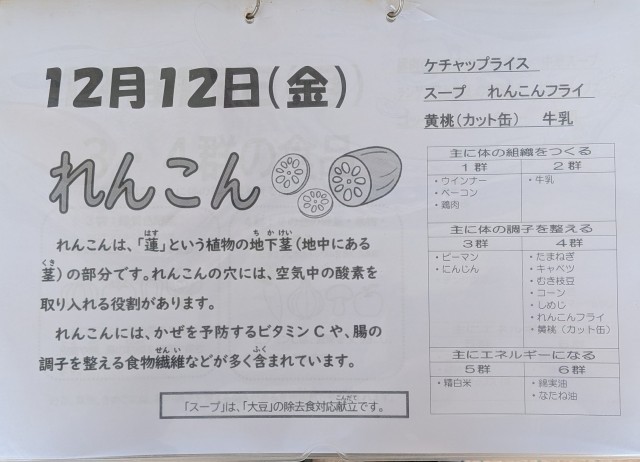 12月12日(金)
れんこん
れんこんは、「蓮」という植物の地下茎(地中にある
茎)の部分です。れんこんの穴には、空気中の酸素を
取り入れる役割があります。
れんこんには、かぜを予防するビタミンCや、腸の
調子を整える食物繊維などが多く含まれています。
「スープ」は、「大豆」の除去食対応献立です。
ケチャップライス
スープ れんこんフライ
黄桃(カット缶) 牛乳
主に体の組織をつくる
1群 2群
・ウインナー ・牛乳
・ベーコン
・鶏肉
主に体の調子を整える
3群 4群
・ピーマン ・たまねぎ
・にんじん ・キャベツ
・むき枝豆
・コーン
・しめじ
・れんこんフライ
・黄桃(カット缶)
主にエネルギーになる
5群 6群
・精白米 ・綿実油
・なたね油